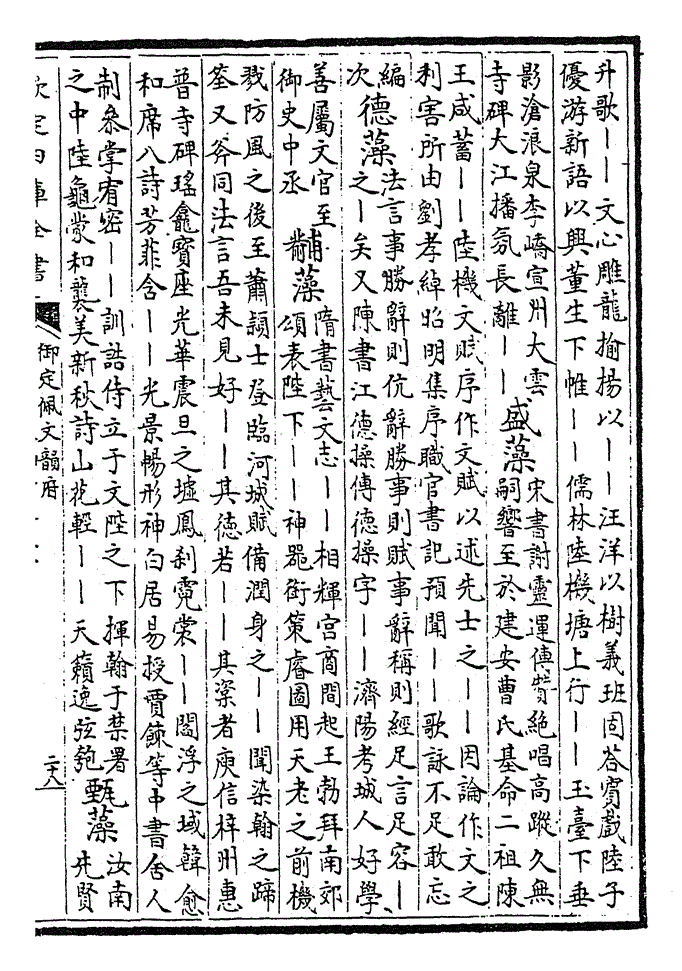 升歌——文心雕龍揄揚以——汪洋以樹義班固荅賓戲陸子
優游新語以興董生下帷——儒林陸機塘上行——玉臺下垂
影滄浪泉李嶠宣州大雲
寺碑大江播氛長離——
盛藻
宋書謝靈運傳贊絶唱高蹤久無
嗣響至於建安曹氏基命二祖陳
王咸蓄——陸機文賦序作文賦以述先士之——因論作文之
利害所由劉孝綽昭明集序職官書記預聞——歌詠不足敢忘
編
次
德藻
法言事勝辭則伉辭勝事則賦事辭稱則經足言足容—
之—矣又陳書江德操傳德操字——濟陽考城人好學
善屬文官至
御史中丞
黼藻
隋書藝文志——相輝宮商間起王勃拜南郊
頌表陛下——神器銜策睿圖用天老之前機
戮防風之後至蕭頴士登臨河城賦備潤身之——聞染翰之蹄
筌又斧同法言吾未見好——其徳若——其粢者庾信梓州惠
普寺碑瑤龕寳座光華震旦之墟鳳刹霓棠——閻浮之域韓愈
和席八詩芳菲含——光景暢形神白居易授賈餗等中書舍人
制叅掌宥密——訓誥侍立于文陛之下揮翰于禁署
之中陸龜蒙和襲美新秋詩山花輕——天籟逸弦匏
甄藻
汝南
先賢
欽定四庫全書
御定佩文韻府
二十八